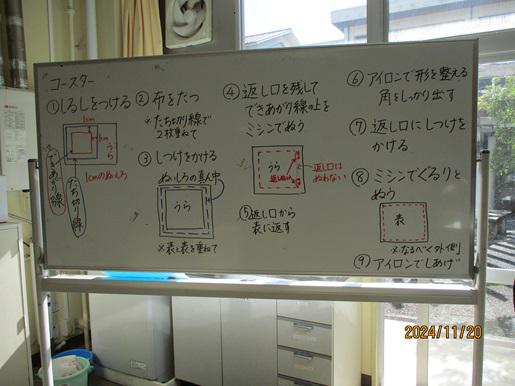 コースター
①しるしをつける
1cm
1cm
うら
1cmのぬいしろ
できあがり線
たち切り線
②布をたつ
※たち切り線で
2枚重ねて
③しつけをかける
ぬいしろの真ん中
うら
※表と表を重ねて
④返し口を残して
できあがり線の上を
ミシンでぬう
うら
返し口
返し口は
ぬわない
⑤返し口から
表に返す
⑥アイロンで形を整える
角をしっかり出す
⑦返し口にしつけを
かける
⑧ミシンでぐるりと
ぬう
表
※なるべく外側
⑨アイロンでしあげ
2024/11/20